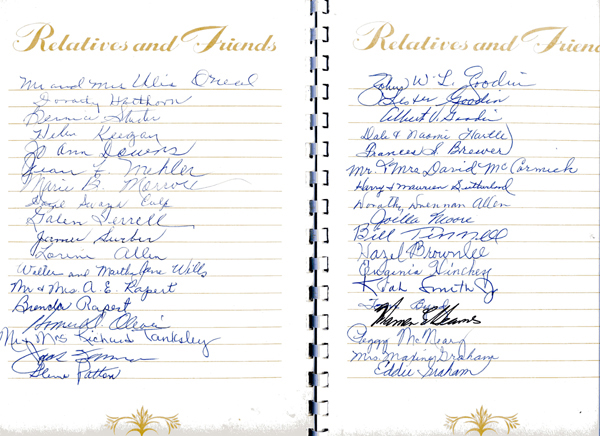 Relatives and Friends
Mr and Mrs Ulis Oneal
Dorothy Hawthorn
Bernice
Helen Keegan
Jo Ann Downs
Jean E Mehler
Marie B. Morrow
Savage
Galen Ferrell
James Gerber
Lorine Allen
Walter and Martha Jane Wells
Mr & Mrs. A. E. Rapert
Brenda Rapert
Mr & Mrs Richard Tanksley
Patton
Relatives and Frien
W. L. Goodin
Lester Goodin
Albert V. Goodin
Dale & Naomi Hartle
Frances S. Brewer
Mr. & Mrs David McCormick
Harry & Maurien Sutherland
Dorothy Drennan Allen
Joella Moore
Bill Tinnell
Hazel Brownlee
Virginia Hinchey
Smith Jr
Warren E Hearnes
Peggy McNeary
Mrs. Graham
Eddie Graham